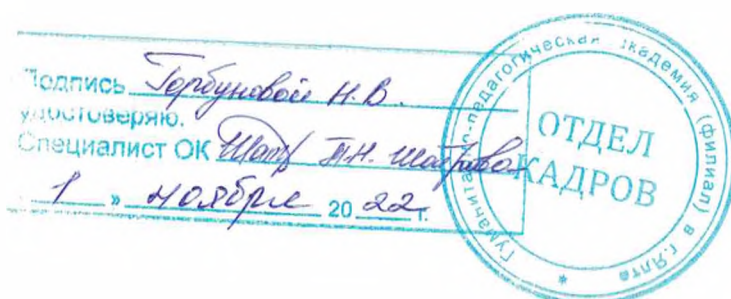 Подпись Горбуновой Н.В.
удостоверяю.
Специалист ОК Т.Н.
1 » ноября 20 22 г.
Гуманитарно-педагогическая академия (филиал) в г.Ялта
ОТДЕЛ
КАДРОВ